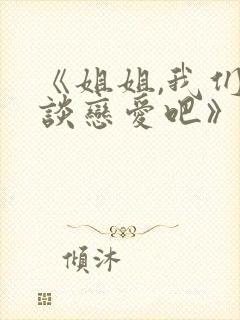 《姐姐,我们
談戀愛吧》
傾沐